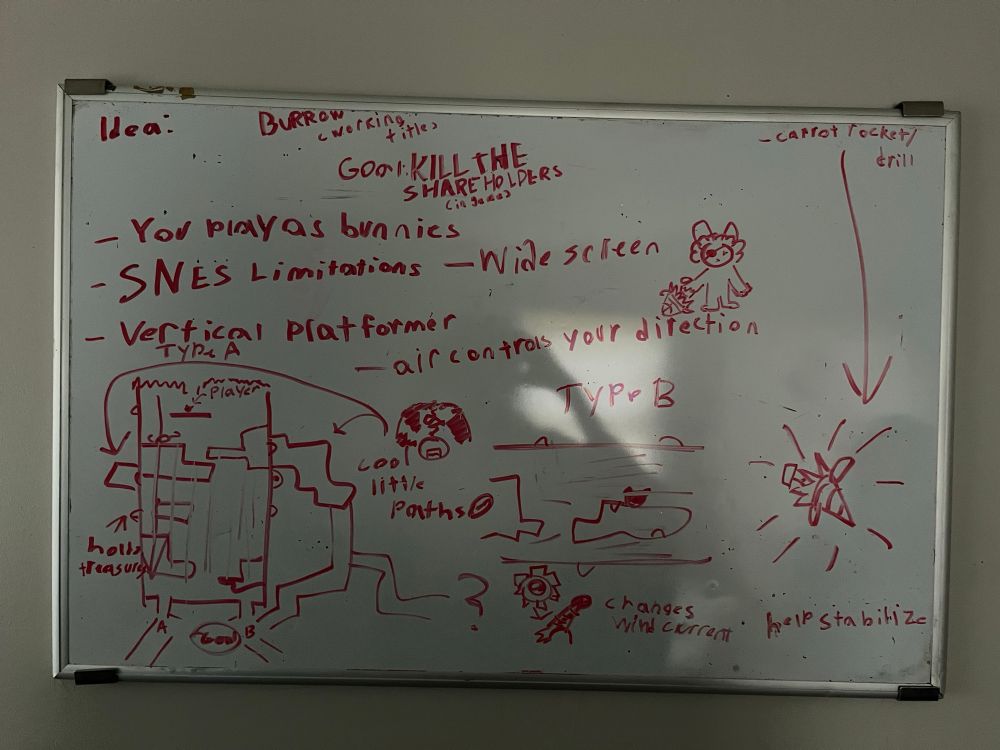 Idea:
BURROW
(working
title)
Goal: KILL THE
SHAREHOLDERS
(in game)
- carrot rocket/
drill
- You play as bunnies
- SNES Limitations - Wide screen
- Vertical platformer
- air controls your direction
Type A
Player
Type B
cool
little
paths
holds
treasure
A
Goal
B
?
changes
wind current
help stabilize